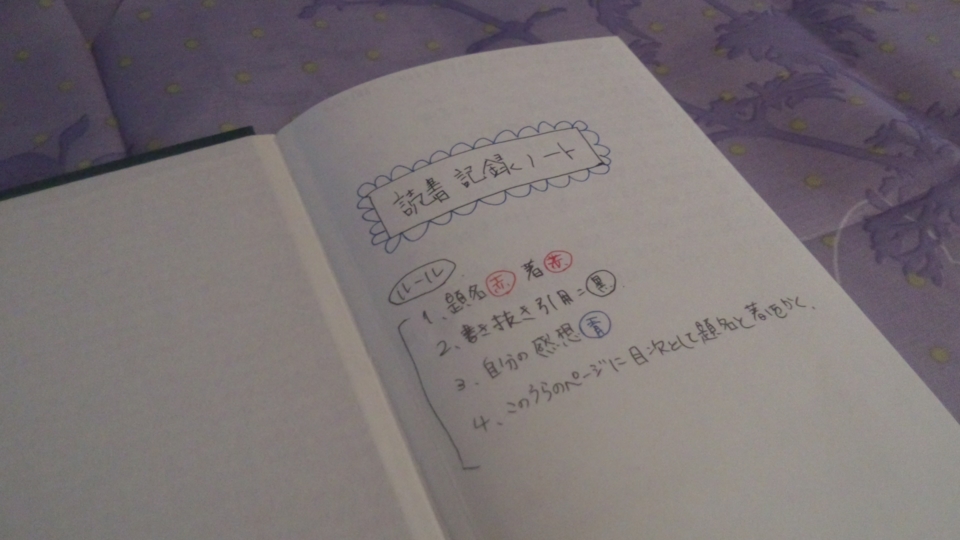 読書記録ノート
ルール
1、題名赤 著赤
2、書き抜き引用=黒
3、自分の感想青
4、このうらのページに目次として題名と著をかく。